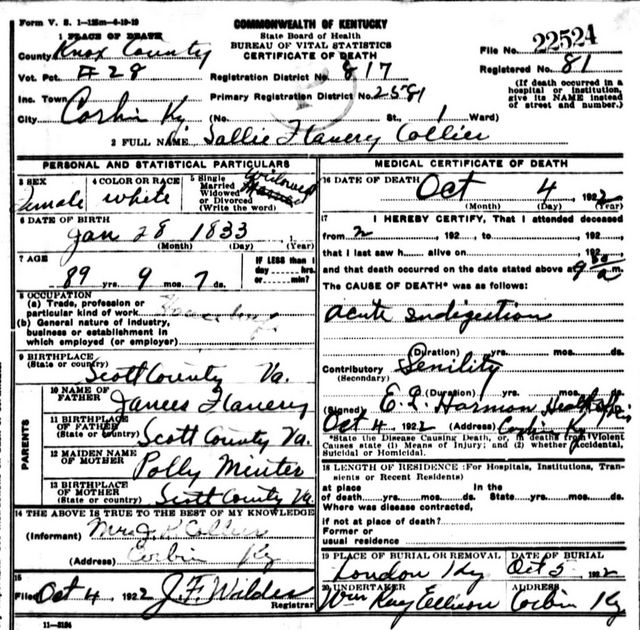 Form V. S. 1—125m—6-19-19
COMMONWEALTH OF KENTUCKY
State Board of Health
BUREAU OF VITAL STATISTICS
CERTIFICATE OF DEATH
1 PLACE OF DEATH
County Knox County
Vot. Pct. #28
Inc. Town
City Corbin Ky
File No. 22524
Registered No. 81
Registration District No. 817
Primary Registration District No. 2581
(If death occurred in a hospital or institution, give its NAME instead of street and number.)
(No. St., 1 Ward)
2 FULL NAME Sallie Flanery Collier
PERSONAL AND STATISTICAL PARTICULARS
3 SEX Female
4 COLOR OR RACE White
5 Single Married Widowed or Divorced (Write the word) Widowed
6 DATE OF BIRTH
Jan 28 1833
(Month) (Day) (Year)
7 AGE
89 yrs. 9 mos. 7 ds.
IF LESS than 1 day......hrs. or......min?
8 OCCUPATION
(a) Trade, profession or particular kind of work
(b) General nature of industry, business or establishment in which employed (or employer)
9 BIRTHPLACE
(State or country)
Scott County Va.
PARENTS
10 NAME OF FATHER
James Flanery
11 BIRTHPLACE OF FATHER
(State or country)
Scott County Va.
12 MAIDEN NAME OF MOTHER
Polly
13 BIRTHPLACE OF MOTHER
(State or country)
Scott County Va
14 THE ABOVE IS TRUE TO THE BEST OF MY KNOWLEDGE
(Informant) Mrs J. Collier
(Address) Corbin Ky
15
Filed Oct 4, 1922 J. F. Wilder
Registrar
11—3184
MEDICAL CERTIFICATE OF DEATH
16 DATE OF DEATH Oct 4, 1922
(Month) (Day) (Year)
17 I HEREBY CERTIFY, That I attended deceased
from 2, 192 , to , 192 ,
that I last saw h alive on , 192 ,
and that death occurred on the date stated above at 9 a
The CAUSE OF DEATH* was as follows:
acute indigestion
(Duration) yrs. mos. ds.
Contributory Senility
(Secondary)
(Duration) yrs. mos. ds.
(Signed) Harmon Health
Oct 4, 1922 (Address) Corbin Ky
*State the Disease Causing Death, or, in deaths from Violent Causes state (1) Means of Injury; and (2) whether Accidental, Suicidal or Homicidal.
18 LENGTH OF RESIDENCE (For Hospitals, Institutions, Transients or Recent Residents)
at place of death yrs. mos. ds. In the State yrs. mos. ds.
Where was disease contracted,
if not at place of death?
Former or usual residence
19 PLACE OF BURIAL OR REMOVAL DATE OF BURIAL
London Ky Oct 5, 1922
20 UNDERTAKER ADDRESS
Wm Ray Ellison Corbin Ky